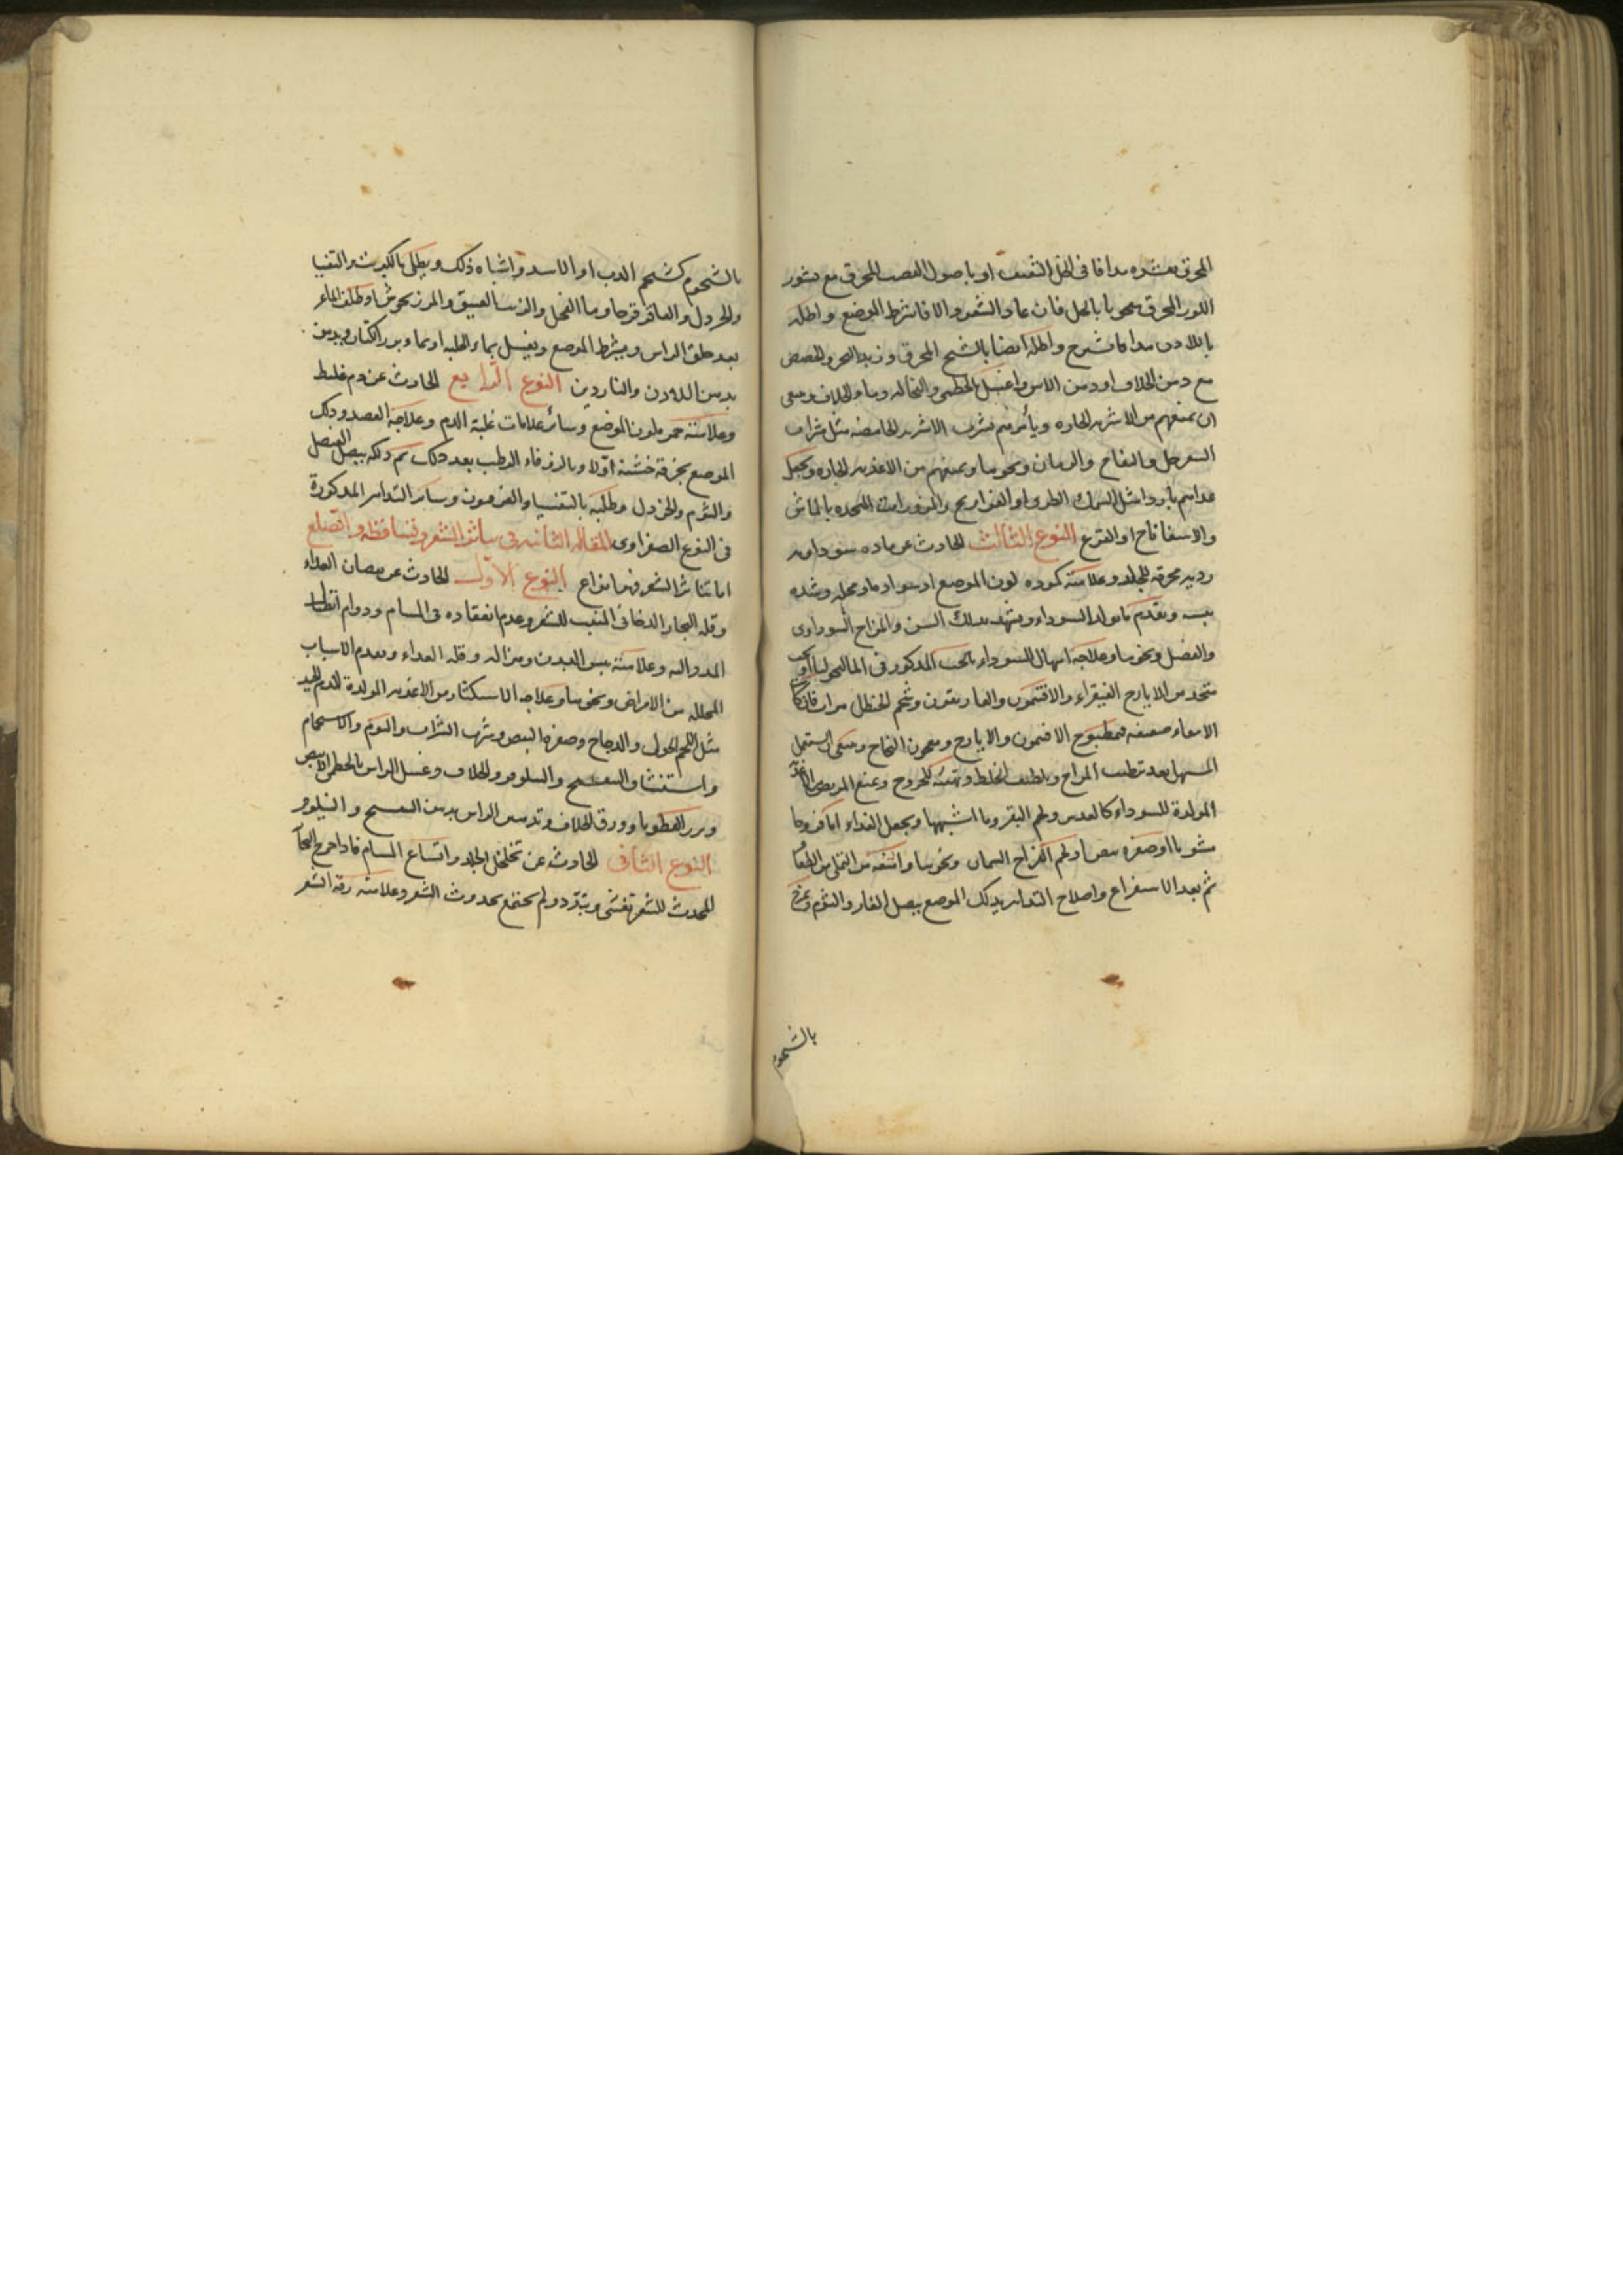 المحرق بقشره مدافا فى الخل الثقيف او باصول القصب المحرق مع قشور
اللوز المحرق معجونا بالخل فان عاد الشعر والا فاشرط الموضع واطله
باللادن مدافا واطله ايضا بالشيح المحرق وزبد البحر
مع دهن الخلاف او دهن الاس واغسل بالخطمى والنخاله وماء الخلاف وينبغى
ان تمنعهم من الاشربه الحاره ويأمرهم بشرب الاشربه الحامضه مثل شراب
السفرجل والتفاح والرمان ونحوها وتمنعهم من الاغذيه الحاره وتجعل
غداهم باردا مثل السمك الطرى او الفراريج والمزورات المتخذه بالماش
والاسفاناخ او القرع النوع الثالث الحادث عن ماده سوداويه
رديه محرقه للجلد وعلامته كموده لون الموضع او سواده ونحوله وشده
يبسه وتقدم ما يولد السوداء ويشهد بذلك السن والمزاج السوداوى
والفصل ونحوها وعلاجه اسهال السوداء بالحب المذكور فى الماليخوليا او بحب
متخذ من الايارج الفيقراء والافتيمون والغاريقون وشحم الحنظل مرات فان كان
الامعاء ضعيفه فمطبوخ الافتيمون والايارج ومعجون النجاح وينبغى ان يستعمل
المسهل بعد ترطيب المزاج وتلطيف الخلط وتهيئه للخروج وتمنع المريض الاغذيه
المولدة للسوداء كالعدس ولحم البقر وما اشبهها ويجعل الغداء اما فروجا
مشويا او صفره بيض او لحم الفراخ السمان ونحوها وامنعه من التملى من الطعام
ثم بعد الاستفراغ واصلاح التدابير يدلك الموضع ببصل الفار والثوم
بالشحوم
بالشحوم كشحم الدب او الاسد واشباه ذلك ويطلى بالكبريت والتفسيا
والخردل والعاقرقرحا وماء الفجل والزيت العتيق والمرزنجوش
بعد حلق الراس ويشرط الموضع ويغسل بماء الحلبه او بماء بزر الكتان ويدهن
بدهن اللادن والناردين النوع الرابع الحادث عن دم غليظ
وعلامته حمره لون الموضع وسائر علامات غلبة الدم وعلاجه الفصد ودلك
الموضع بخرقه خشنة اولا وبالزوفاء الرطب بعد ذلك ثم دلكه ببصل العنصل
والثوم والخردل وطليه بالتفسيا والفرفيون وسائر التدابير المذكورة
فى النوع الصفراوى المقاله الثانيه فى تناثر الشعر وتساقطه والصلع
اما تناثر الشعر فهما نواع النوع الاول الحادث عن نقصان الغداء
وقله البخار الدخانى المنبت للشعر وعدم انعقاده فى المسام ودوام
وعلامته يبس البدن وهزاله وقله الغداء وتقدم الاسباب
المحلله من الامراض ونحوها وعلاجه الاستكثار من الاغذيه المولدة للدم الجيد
مثل اللحم الحولى والدجاج وصفرة البيض وشرب الشراب والنوم والاستحمام
واستنشاق البنفسج والنيلوفر والخلاف وغسل الراس بالخطمى الابيض
وبزر القطونا وورق الخلاف وتدهين الراس بدهن البنفسج والنيلوفر
النوع الثانى الحادث عن تخلخل الجلد واتساع المسام فاذا خرج البخار
المحدث للشعر تفشى وتبدد ولم يجتمع بحدوث الشعر وعلامته رقة الشعر